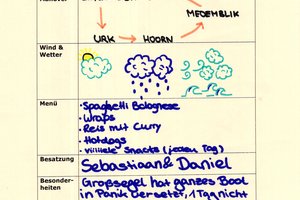 Manöver
MEDEMBLIK
URK → HOORN
Wind & Wetter
Menü
· Spaghetti Bolognese
· Wraps
· Reis mit Curry
· Hotdogs
· viiiiele Snacks (jeden Tag)
Besatzung
Sebastiaan & Daniel
Besonder-
heiten
Großsegel hat ganzes Boot
in Panik versetzt, 1 Tag nicht